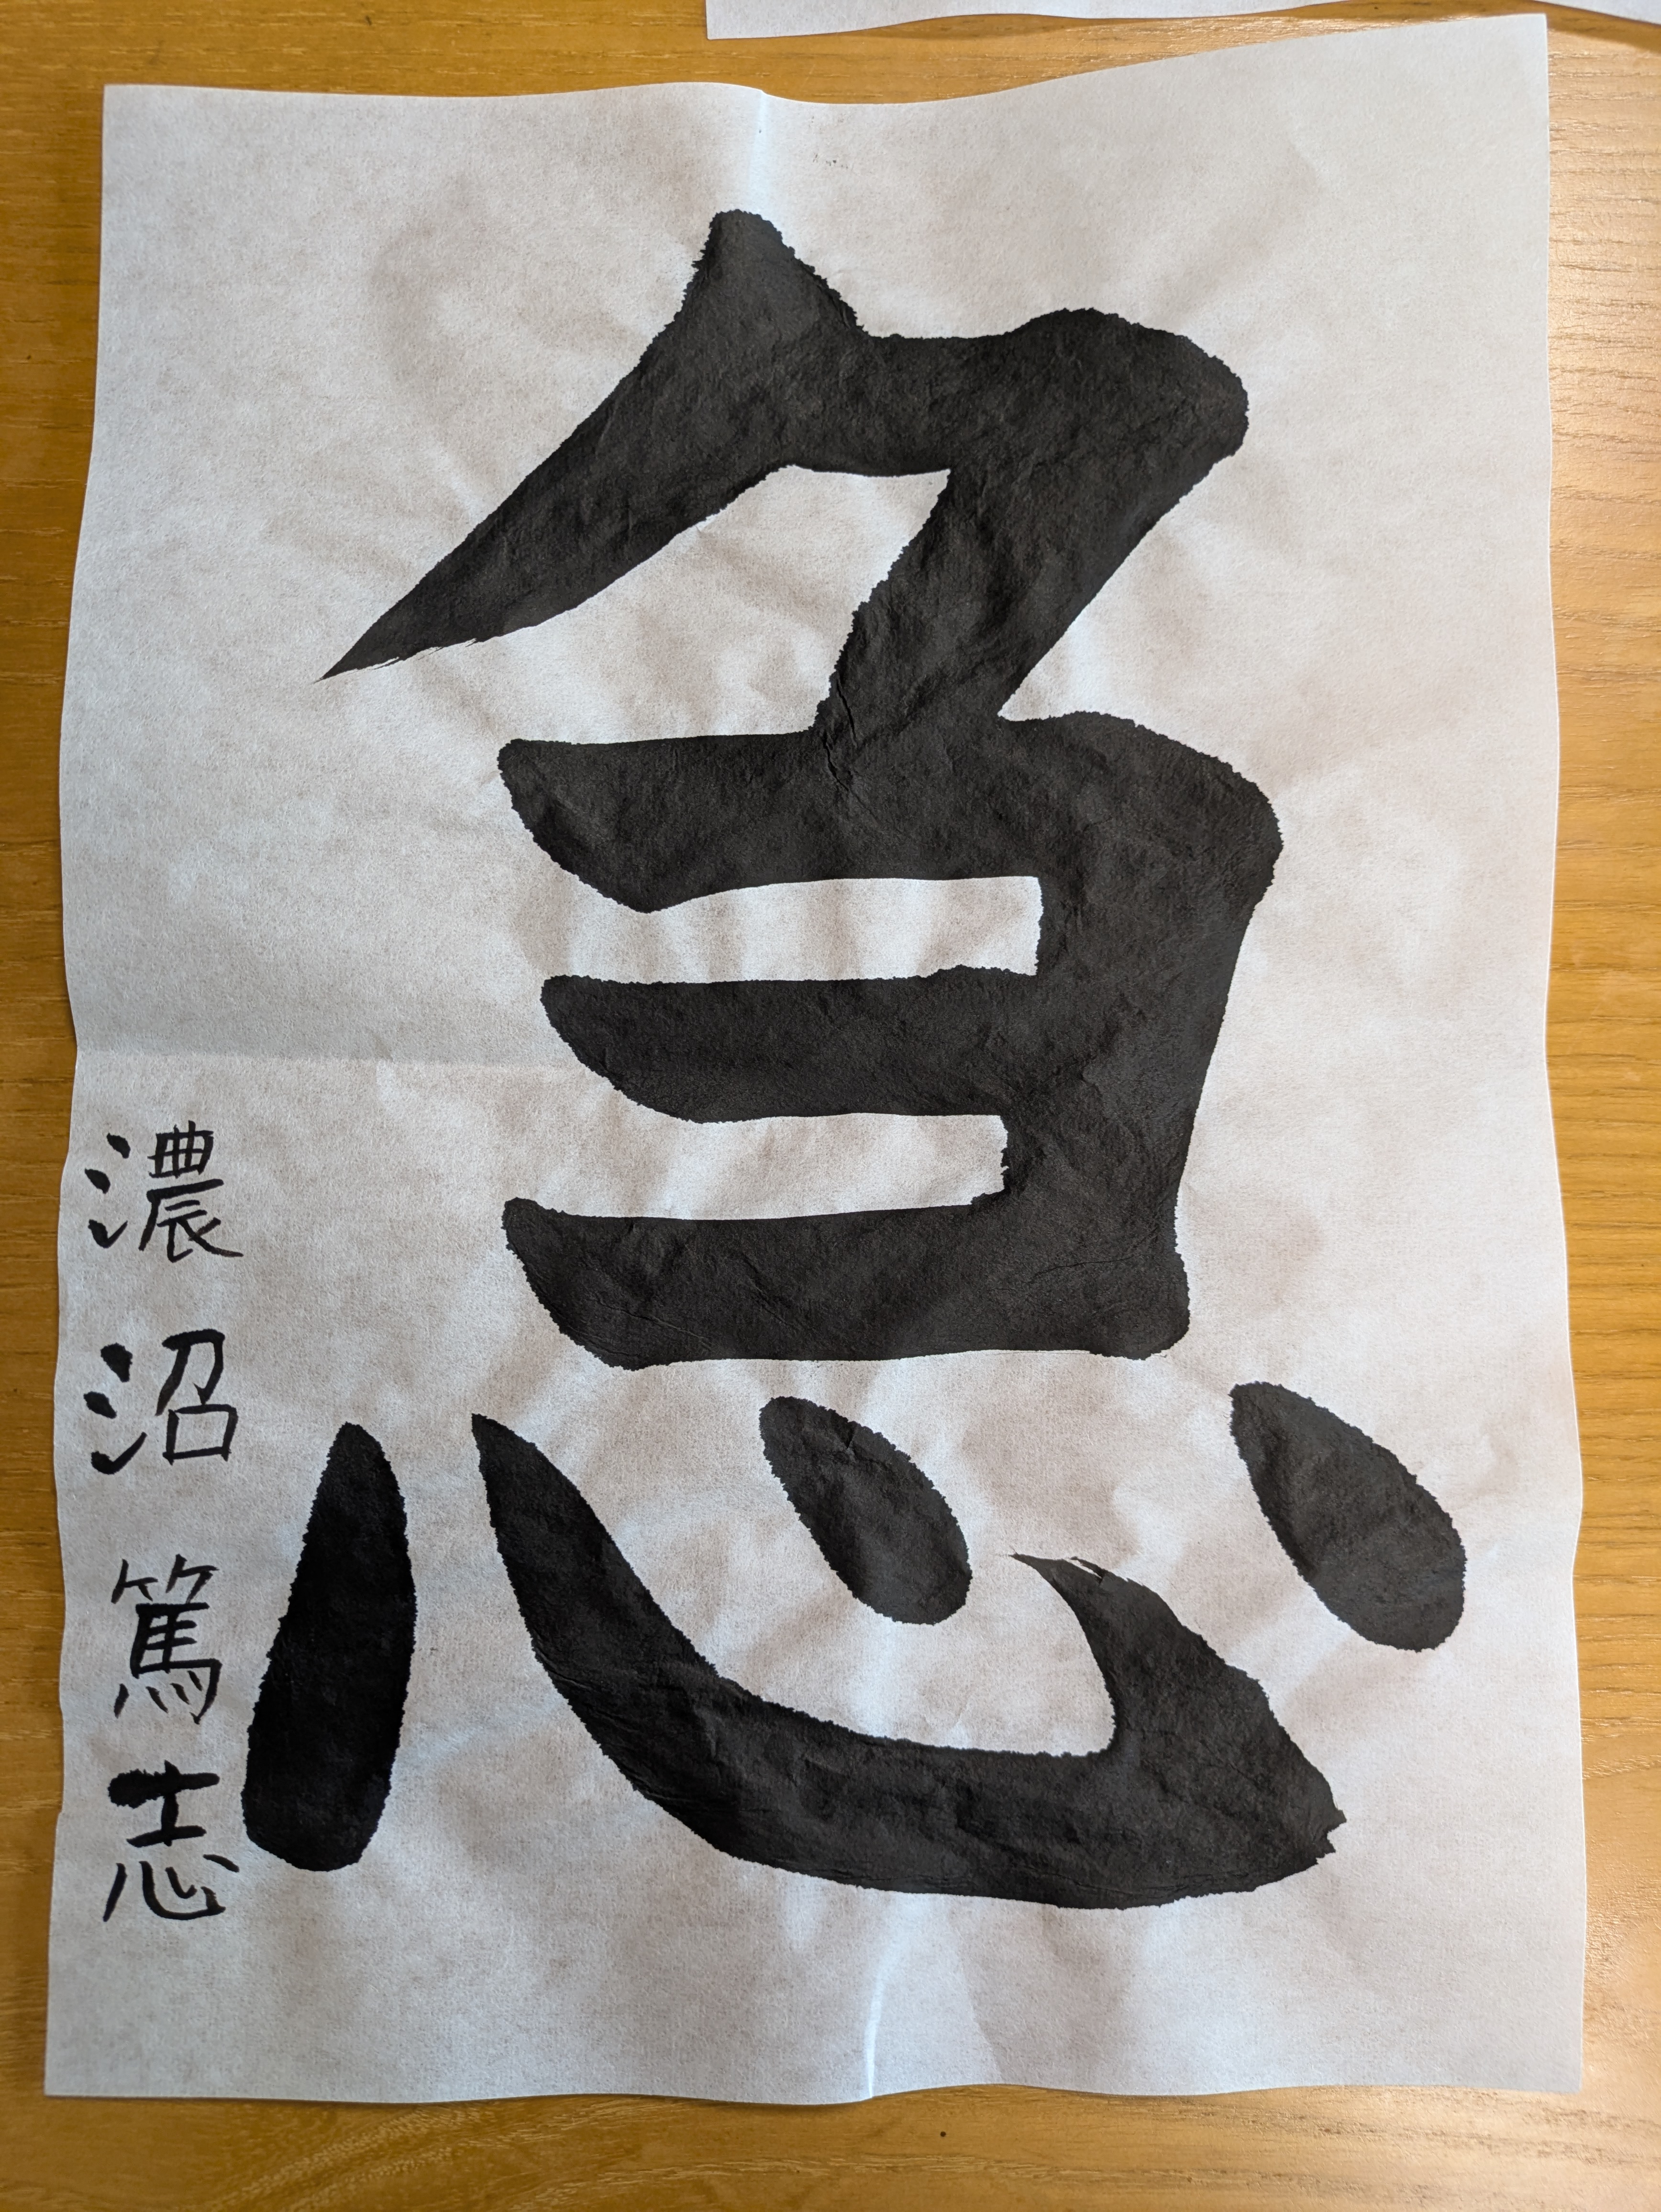 急
濃沼篤志